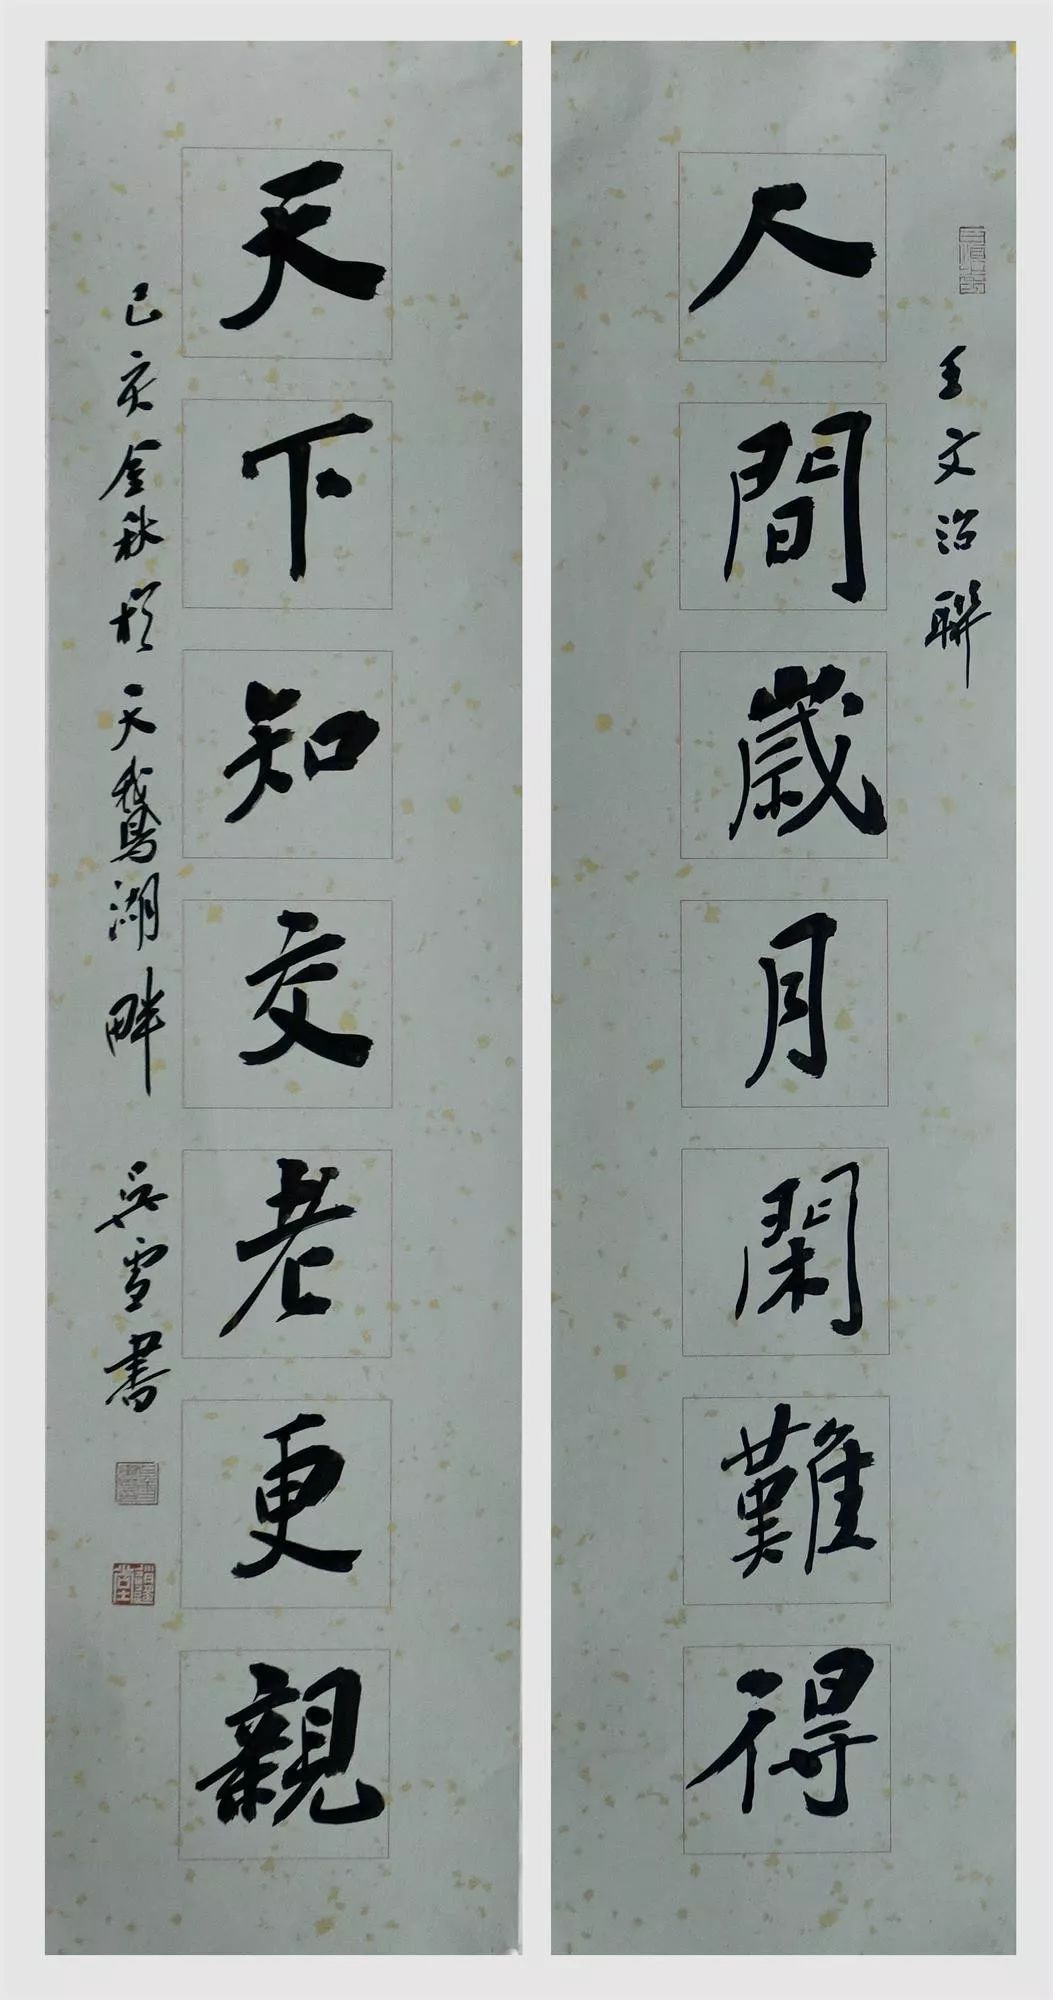 王文治聯
人間歲月閑難得
天下知交老更親
己亥金秋於天鵝湖畔 吳雪書